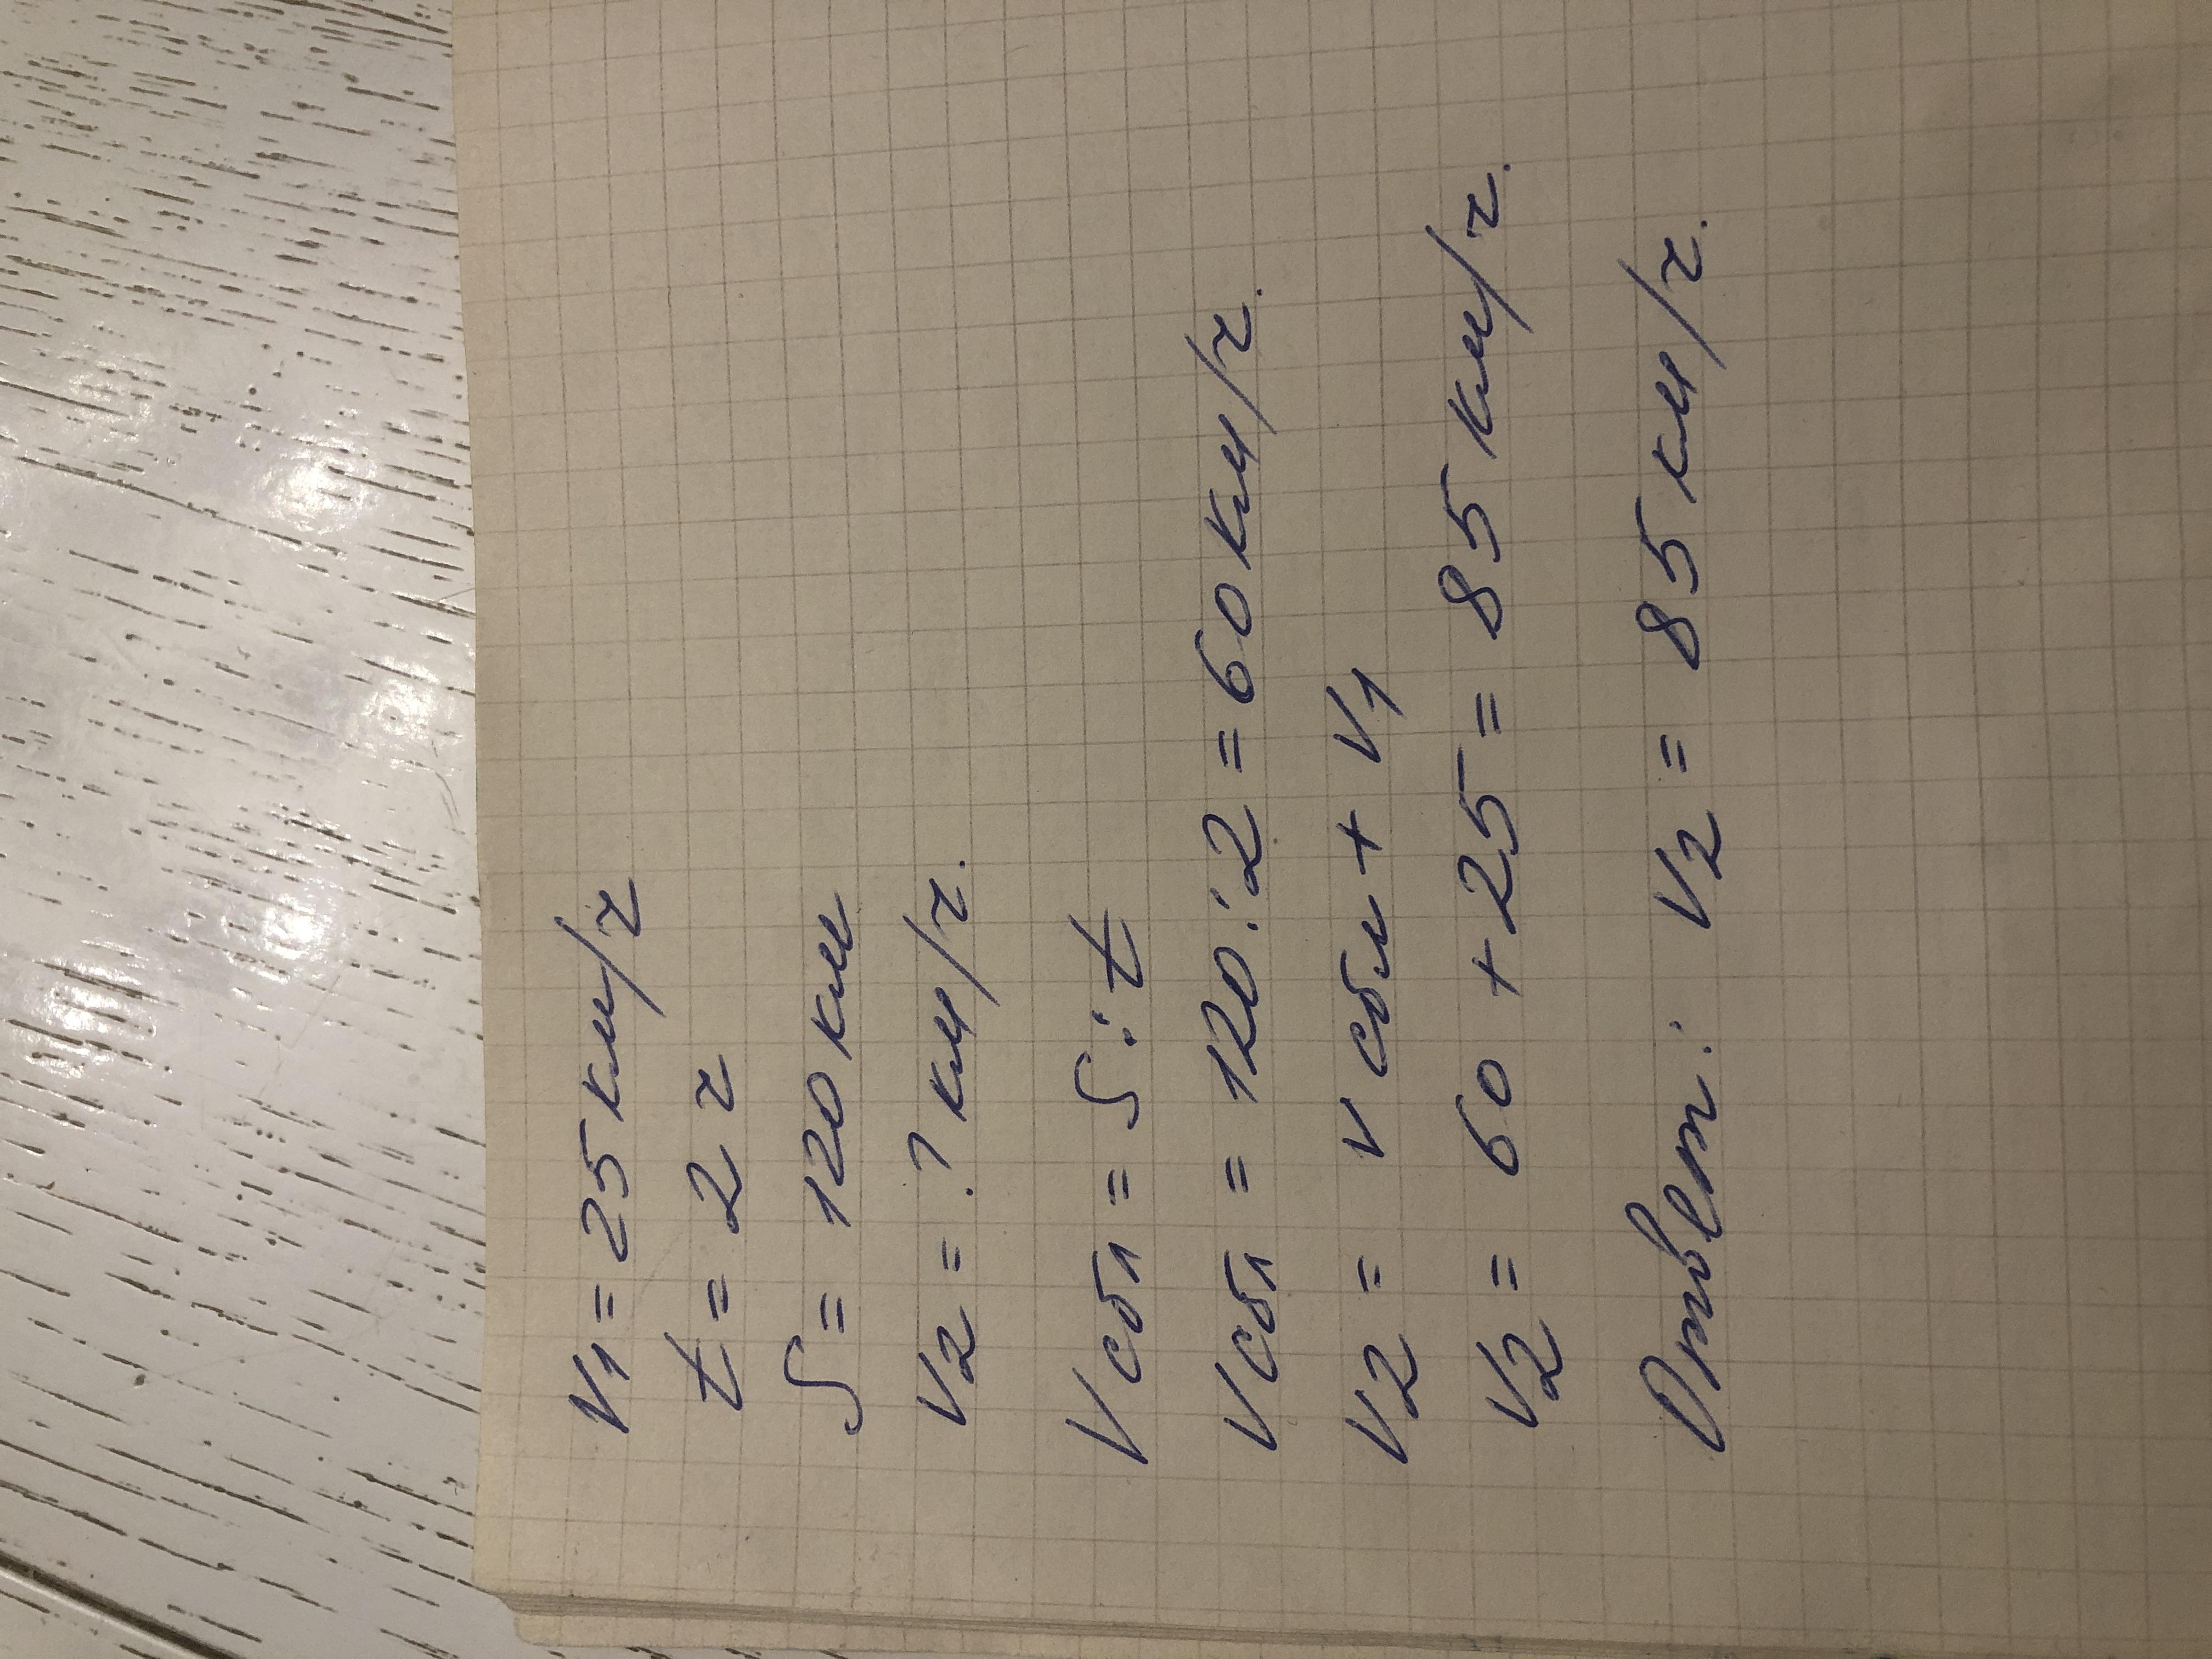 V1 = 25 км/ч
t = 2 ч
S = 120 км
V2 = ? км/ч.
V сбл = S : t
V сбл = 120 : 2 = 60 км/ч.
V2 = V сбл + V1
V2 = 60 + 25 = 85 км/ч.
Ответ: V2 = 85 км/ч.